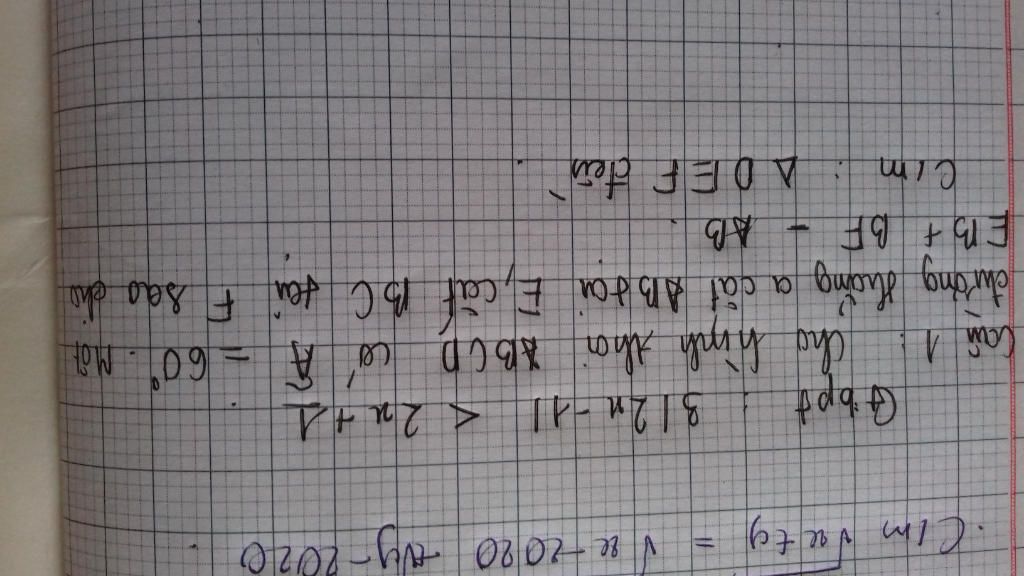 C/m √x+y = √x-2020 + √y-2020
G bpt : 3|2x-1| < 2x+1
Câu 1 : Cho hình thoi ABCD có Â = 60°. Một
đường thẳng a cắt AB tại E, cắt BC tại F sao cho
EB + BF = AB.
C/m : Δ DEF đều